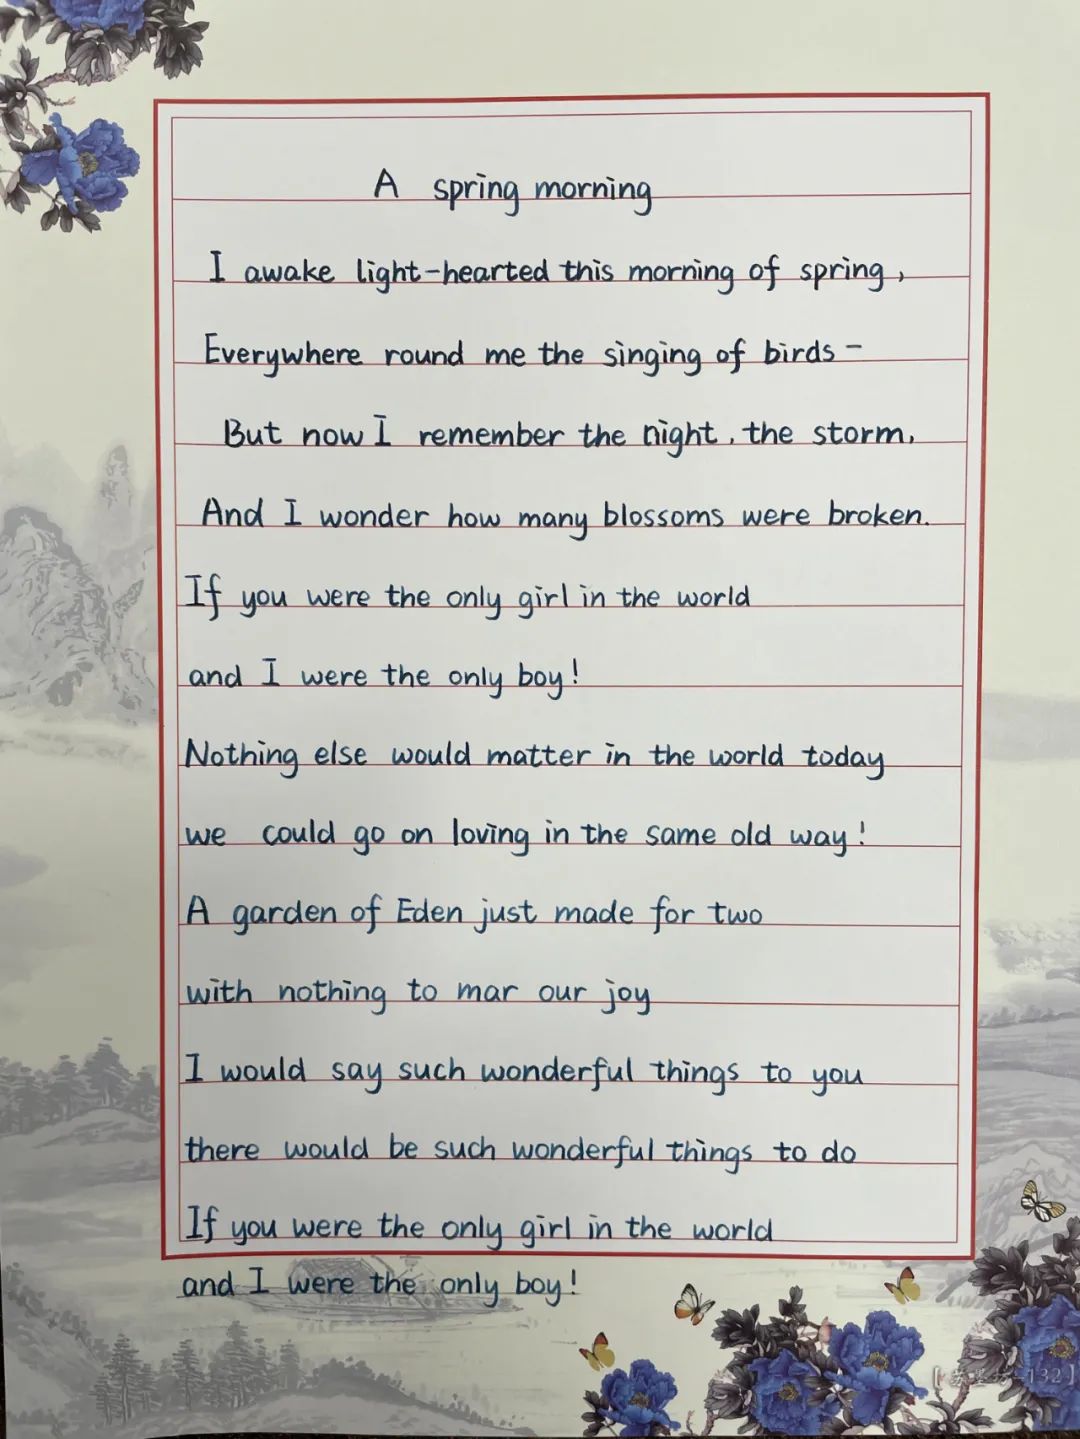 A spring morning
I awake light-hearted this morning of spring,
Everywhere round me the singing of birds -
But now I remember the night, the storm,
And I wonder how many blossoms were broken.
If you were the only girl in the world
and I were the only boy!
Nothing else would matter in the world today
we could go on loving in the same old way!
A garden of Eden just made for two
with nothing to mar our joy
I would say such wonderful things to you
there would be such wonderful things to do
If you were the only girl in the world
and I were the only boy!
132